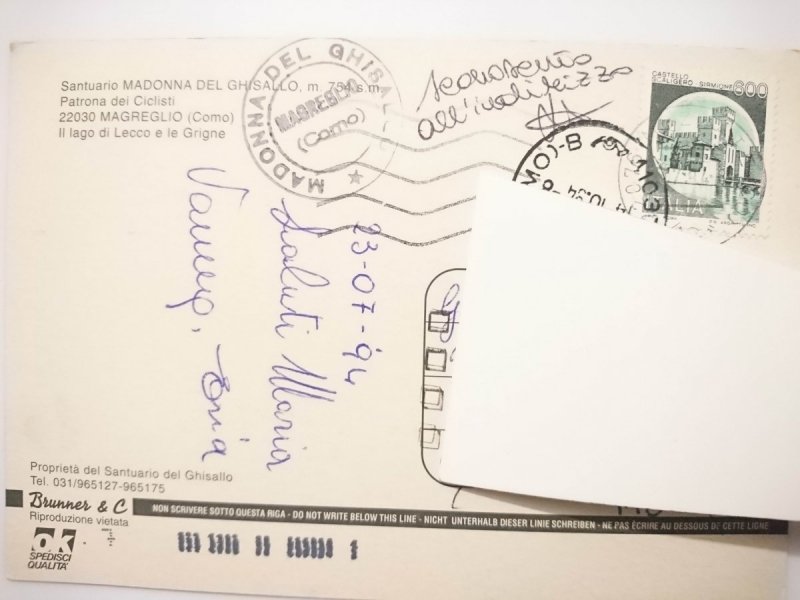 Santuario MADONNA DEL GHISALLO, m. 754 s.m.
Patrona dei Ciclisti
22030 MAGREGLIO (Como)
Il lago di Lecco e le Grigne
MADONNA DEL GHISALLO
MAGREGLIO
(Como)
sconosciuto
all'indirizzo
CASTELLO
SCALIGERO - SIRMIONE
600
ITALIA
23-07-94
Saluti Maria
Proprietà del Santuario del Ghisallo
Tel. 031/965127-965175
Brunner & C
Riproduzione vietata
NON SCRIVERE SOTTO QUESTA RIGA - DO NOT WRITE BELOW THIS LINE - NICHT UNTERHALB DIESER LINIE SCHREIBEN - NE PAS ÉCRIRE AU DESSOUS DE CETTE LIGNE
ok
SPEDISCI
QUALITÀ